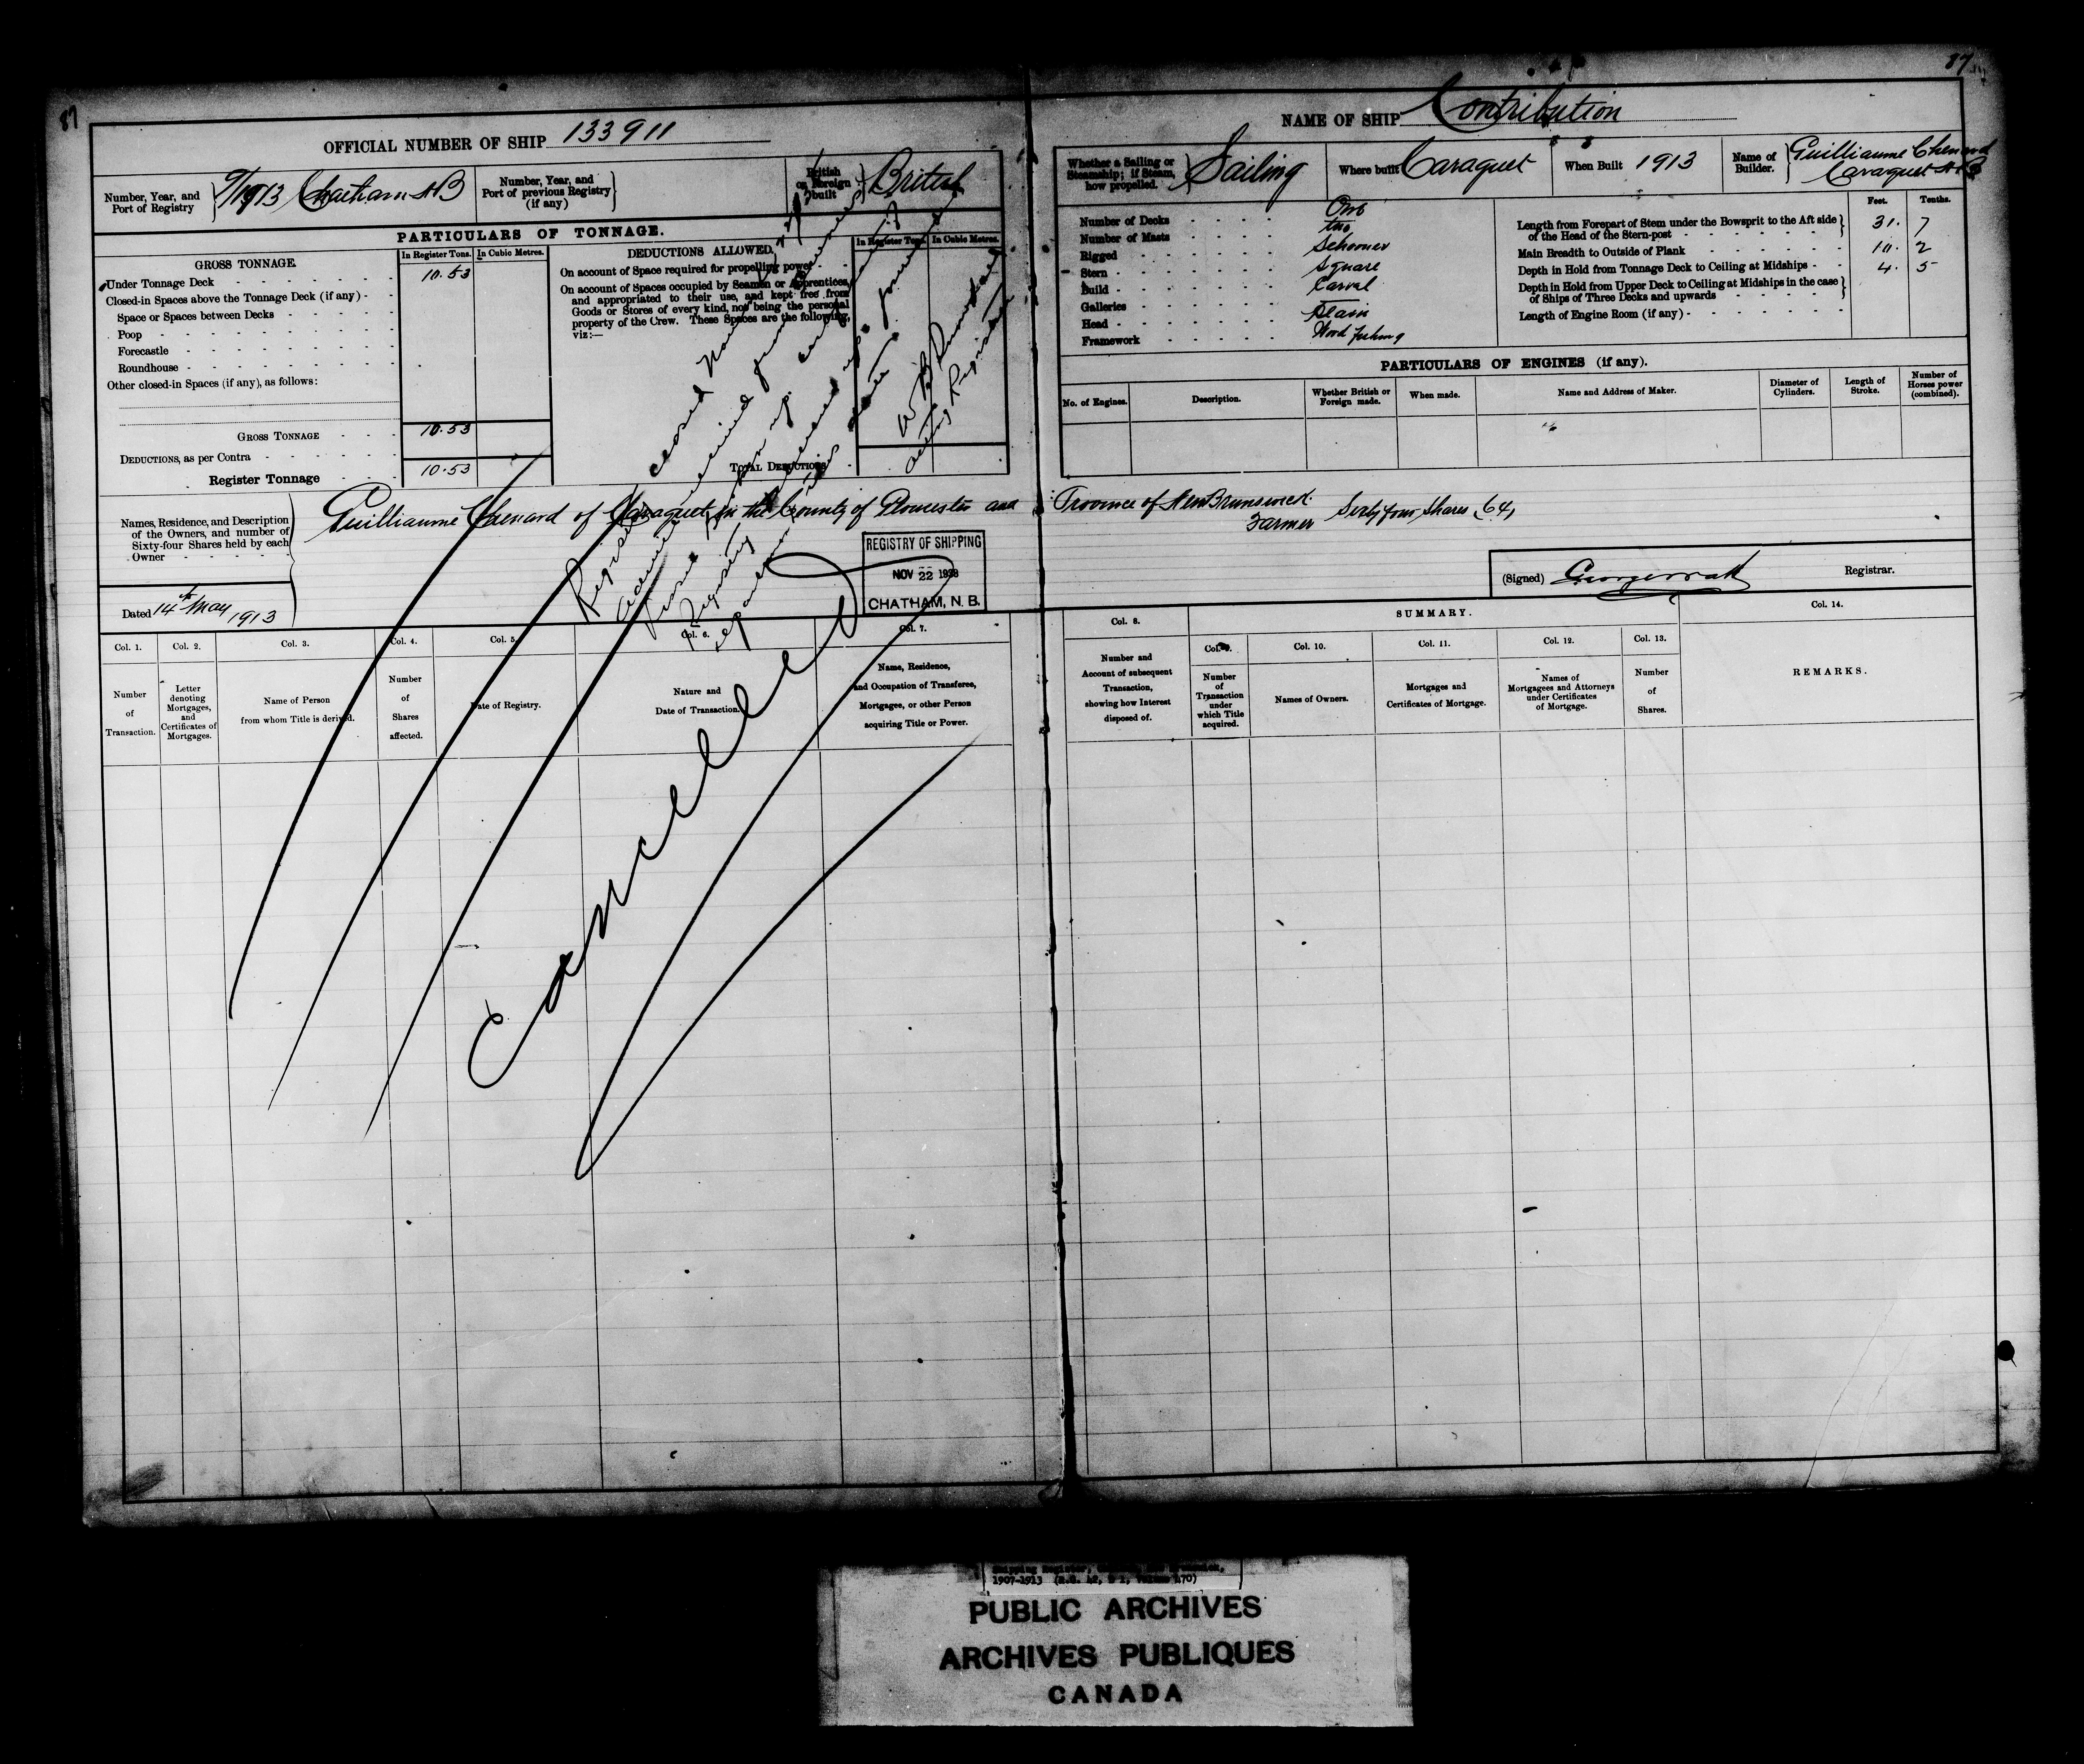 87
87
OFFICIAL NUMBER OF SHIP 133911
NAME OF SHIP Contribution
Number, Year, and Port of Registry
9/1913 Chatham NB
Number, Year, and Port of previous Registry (if any)
British or Foreign built
British
Whether a Sailing or Steamship; if Steam, how propelled.
Sailing
Where built Caraquet
When Built 1913
Name of Builder.
Guilliaume Chenard
Caraquet N.B
PARTICULARS OF TONNAGE.
GROSS TONNAGE.
In Register Tons.
In Cubic Metres.
Under Tonnage Deck 10.53
Closed-in Spaces above the Tonnage Deck (if any)
Space or Spaces between Decks
Poop
Forecastle
Roundhouse
Other closed-in Spaces (if any), as follows:
GROSS TONNAGE 10.53
DEDUCTIONS, as per Contra
Register Tonnage 10.53
DEDUCTIONS ALLOWED.
In Register Tons.
In Cubic Metres.
On account of Space required for propelling power
On account of Spaces occupied by Seamen or Apprentices,
and appropriated to their use, and kept free from
Goods or Stores of every kind, not being the personal
property of the Crew. These Spaces are the following,
viz:—
TOTAL DEDUCTIONS
Number of Decks One
Number of Masts two
Rigged Schooner
Stern Square
Build Carvel
Galleries
Head Plain
Framework Wood
Feet. Tenths.
Length from Forepart of Stem under the Bowsprit to the Aft side of the Head of the Stern-post 31. 7
Main Breadth to Outside of Plank 10. 2
Depth in Hold from Tonnage Deck to Ceiling at Midships 4. 5
Depth in Hold from Upper Deck to Ceiling at Midships in the case of Ships of Three Decks and upwards
Length of Engine Room (if any)
PARTICULARS OF ENGINES (if any).
No. of Engines.
Description.
Whether British or Foreign made.
When made.
Name and Address of Maker.
Diameter of Cylinders.
Length of Stroke.
Number of Horses power (combined).
closed
Acting Registrar
Names, Residence, and Description
of the Owners, and number of
Sixty-four Shares held by each
Owner
Guilliaume Chenard of Caraquet in the County of Gloucester and Province of New Brunswick
Farmer Sixty four Shares (64)
REGISTRY OF SHIPPING
NOV 22 1938
CHATHAM, N. B.
Dated 14th May 1913
(Signed)
Registrar.
Cancelled
SUMMARY.
Col. 1.
Number of Transaction.
Col. 2.
Letter denoting Mortgages, and Certificates of Mortgages.
Col. 3.
Name of Person from whom Title is derived.
Col. 4.
Number of Shares affected.
Col. 5.
Date of Registry.
Col. 6.
Nature and Date of Transaction.
Col. 7.
Name, Residence, and Occupation of Transferee, Mortgages, or other Person acquiring Title or Power.
Col. 8.
Number and Account of subsequent Transaction, showing how Interest disposed of.
Number of Transaction under which Title acquired.
Col. 10.
Names of Owners.
Col. 11.
Mortgages and Certificates of Mortgage.
Col. 12.
Names of Mortgagees and Attorneys under Certificates of Mortgage.
Col. 13.
Number of Shares.
Col. 14.
REMARKS.
1907-1913
PUBLIC ARCHIVES
ARCHIVES PUBLIQUES
CANADA